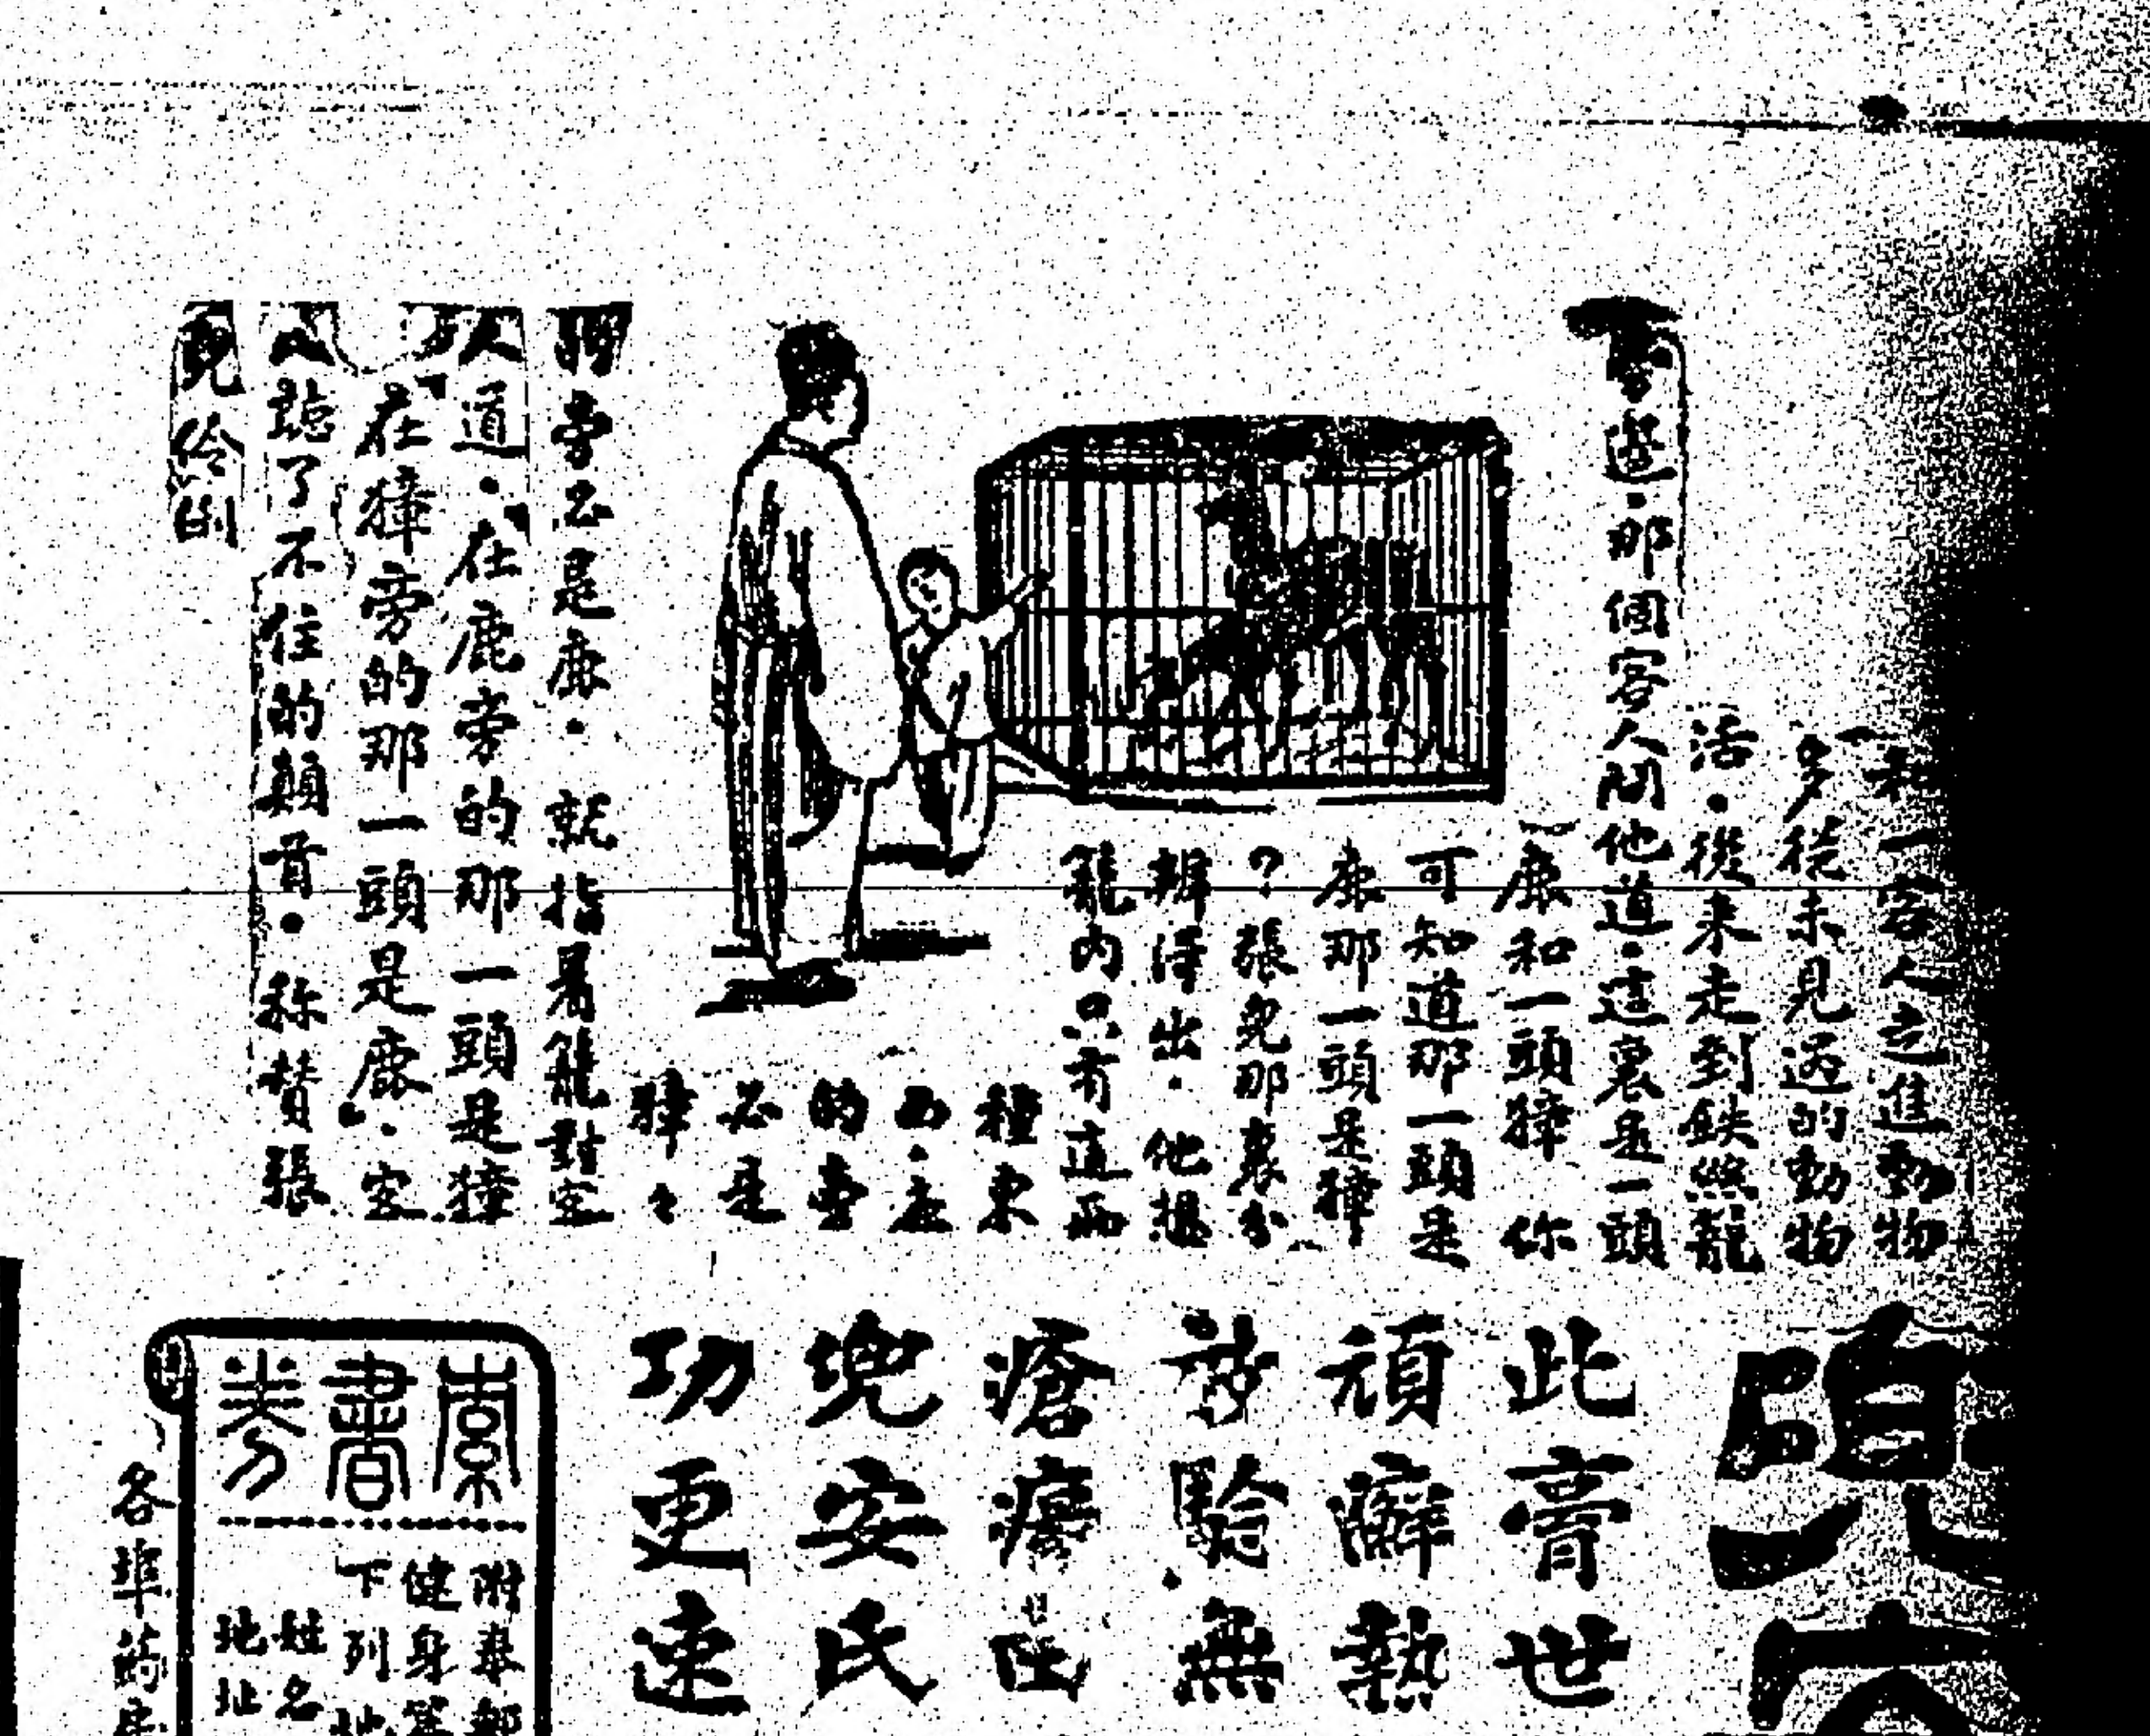 一客人走進動物
多從未見過的動物
活·從來走到鉄絲籠
邊·那個客人問他道·這裏是一頭
鹿和一頭獐 你
可知道那一頭是
鹿那一頭是獐
?張兒那裏分
辨得出·他想
籠内只有這兩
種東
西·鹿
的旁
必是
獐々
旁必是鹿·就指着籠對客
人道·在鹿旁的那一頭是獐
在獐旁的那一頭是鹿·客
人聽了不住的顛首·称賛張
兒伶俐
此膏世
頑癬熱
驗無
瘡瘍
兜安氏
功更速
兜安
索書券
附奉郵
健身
下列地
姓名
地址
各埠葯房